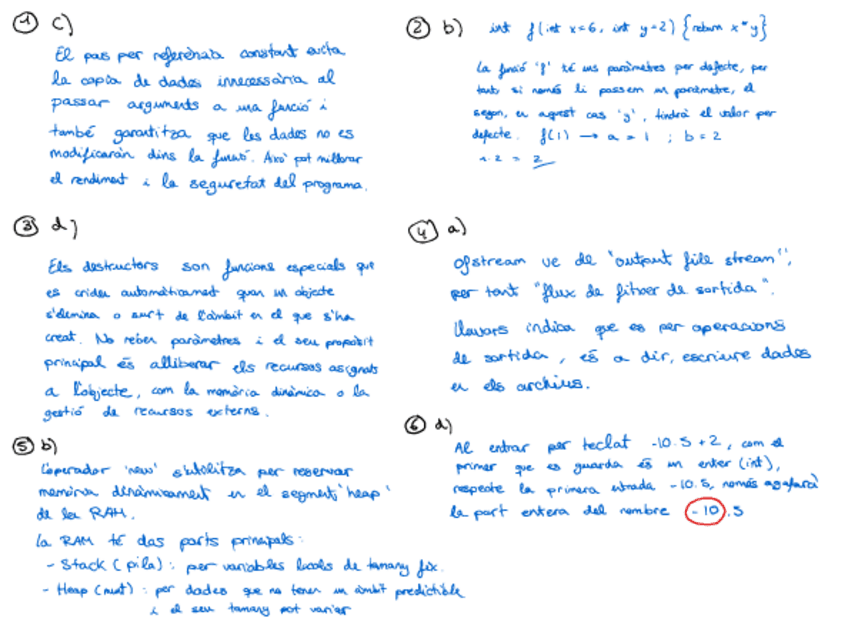 1 c)
El pas per referència constant evita
la copia de dades innecessària al
passar arguments a una funció i
també garantitza que les dades no es
modificaràn dins la funció. Això pot millorar
el rendiment i la seguretat del programa.
2 b) int f(int x=6, int y=2) {return x*y}
La funció 'f' té uns paràmetres per defecte, per
tant si només li passem un paràmetre, el
segon, en aquest cas 'y', tindrà el valor per
defecte. f(1) → a = 1 ; b = 2
1·2 = 2
3 d)
Els destructors son funcions especials que
es criden automàticament quan un objecte
s'elimina o surt de l'àmbit en el que s'ha
creat. No reben paràmetres i el seu propòsit
principal és alliberar els recursos assignats
a l'objecte, com la memòria dinàmica o la
gestió de recursos externs.
4 a)
Ofstream ve de "output file stream",
per tant "flux de fitxer de sortida".
Llavors indica que es per operacions
de sortida, és a dir, escriure dades
en els archius.
5 b)
L'operador 'new' s'utilitza per reservar
memòria dinàmicament en el segment 'heap'
de la RAM.
La RAM té dos parts principals:
- Stack (pila): per variables locals de tamany fix.
- Heap (munt): per dades que no tenen un àmbit predictible
i el seu tamany pot variar
6 d)
Al entrar per teclat -10.5 + 2, com el
primer que es guarda és un enter (int),
respecte la primera entrada -10.5, només agafarà
la part entera del nombre -10.5